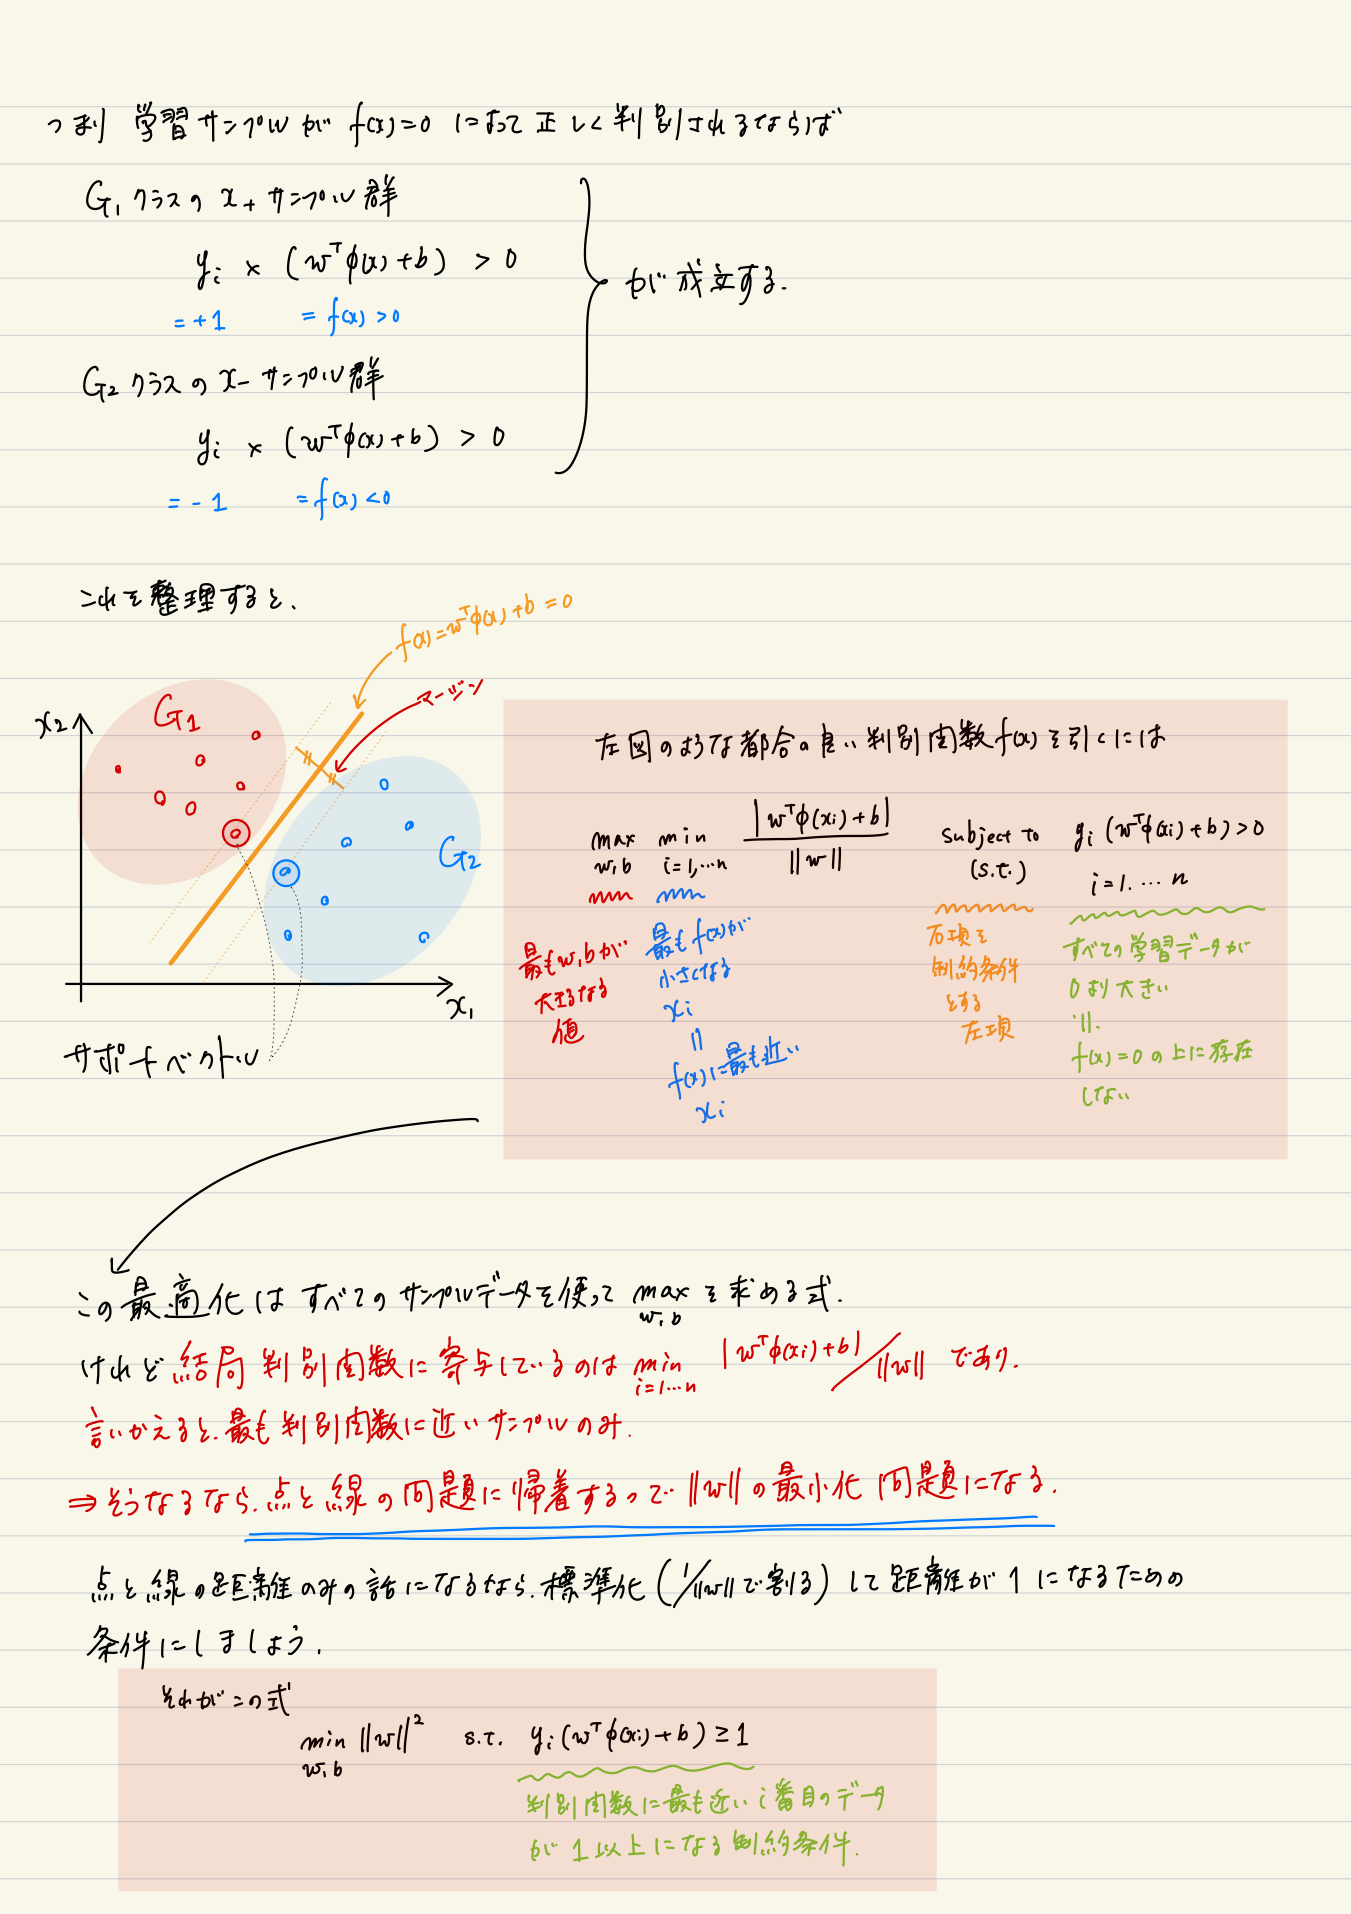 つまり 学習サンプルが f(x)=0 によって正しく判別されるならば
G₁クラスの x₊ サンプル群
yᵢ × (wᵀφ(x)+b) > 0
=+1 = f(x)>0
が成立する.
G₂クラスの x₋ サンプル群
yᵢ × (wᵀφ(x)+b) > 0
=-1 =f(x)<0
これを整理すると、
f(x)=wᵀφ(x)+b=0
マージン
G₁
x₂
G₂
x₁
サポートベクトル
左図のような都合の良い判別関数f(x)を引くには
max w,b min i=1,…n |wᵀφ(xᵢ)+b| / ||w|| subject to (s.t.) yᵢ(wᵀφ(xᵢ)+b)>0 i=1.…n
最もw,bが
大きくなる
値
最もf(x)が
小さくなる
xᵢ
||
f(x)に最も近い
xᵢ
右項を
制約条件
とする
左項
すべての学習データが
0より大きい
||.
f(x)=0の上に存在
しない
この最適化はすべてのサンプルデータを使って max w,b を求める式.
けれど結局判別関数に寄与しているのは min i=1…n |wᵀφ(xᵢ)+b|/||w|| であり.
言いかえると、最も判別関数に近いサンプルのみ.
⇒そうなるなら、点と線の問題に帰着するって||w||の最小化問題になる.
点と線の距離のみの話になるなら、標準化(1/||w||で割る)して距離が1になるための
条件にしましょう.
それがこの式
min w,b ||w||² s.t. yᵢ(wᵀφ(xᵢ)+b)≥1
判別関数に最も近いi番目のデータ
が1以上になる制約条件.